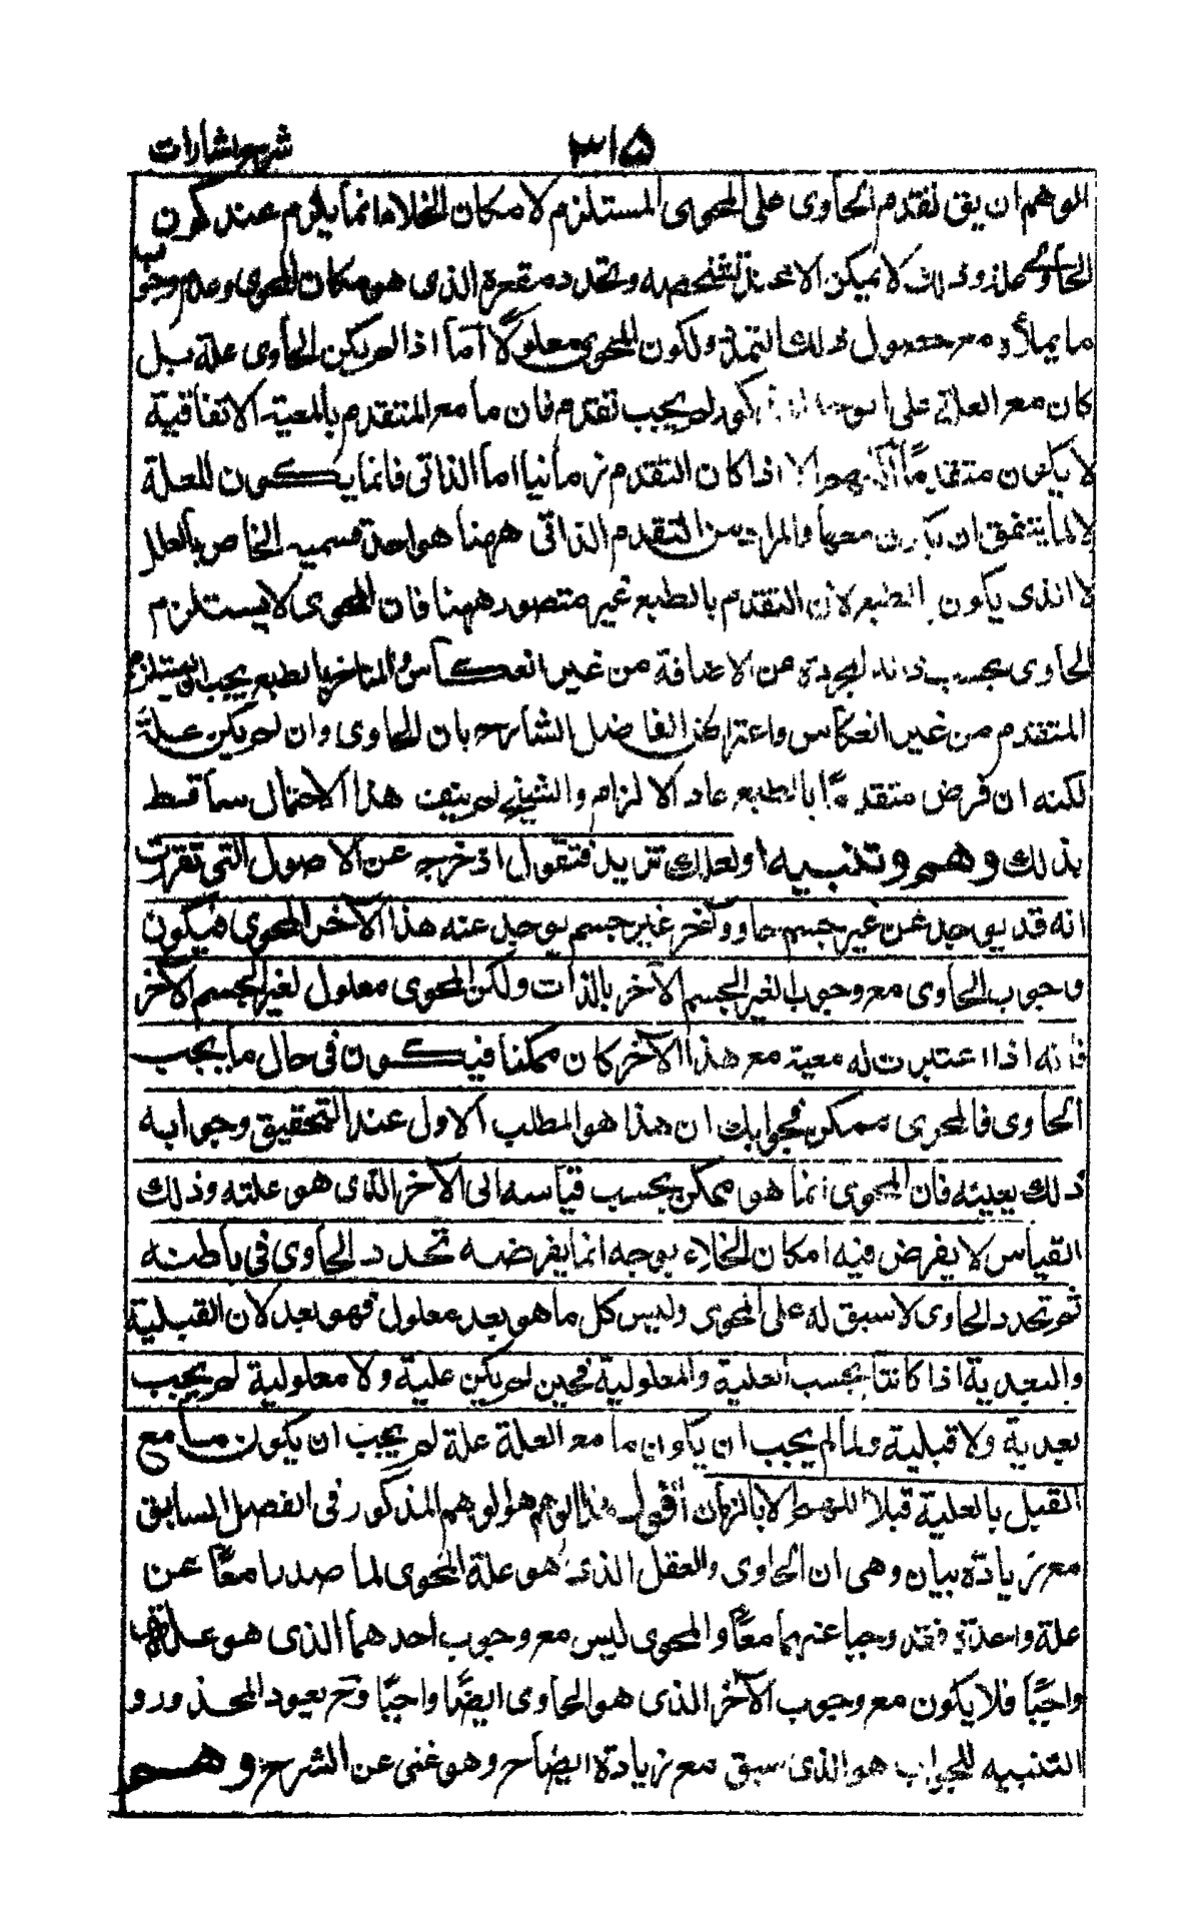 شرح اشارات ٣١٥
الموهم ان يق تقدم الحاوى على المحوى المستلزم لامكان الخلاء انما يلزم عند كون
الحاوى علة وذلك لا يمكن الا عند تشخصه وتحدد مقعره الذى هو مكان المحوى وعدم وجوب
ما يملأه مع حصول ذلك التحدد ولكون المحوى معلولا اما اذا لم يكن الحاوى علة بل
كان مع العلة على الوجه المذكور لم يجب تقدمه فان ما مع المتقدم بالمعية الاتفاقية
لا يكون متقدما اللهم الا اذا كان التقدم زمانيا اما الذاتى فانما يكون للعلة
لا لما يتفق ان يكون معها والمراد من التقدم الذاتى ههنا هو احد قسميه الخاص بالعلل
لا الذى يكون بالطبع لان التقدم بالطبع غير متصور ههنا فان المحوى لا يستلزم
الحاوى بحسب ذاته المجردة من الاضافة من غير انعكاس والمتاخر بالطبع يجب ان يستلزم
المتقدم من غير انعكاس واعترض الفاضل الشارح بان الحاوى وان لم يكن علة
لكنه ان فرض متقدما بالطبع عاد الالزام والشيخ لم ينف هذا الاحتمال ساقط
بذلك وهم وتنبيه او لعلك تزيد فتقول اذ خرج عن الاصول التى تقررت
انه قد يوجد عن غير جسم حاو وآخر غير جسم يوجد عنه هذا الآخر المحوى فيكون
وجوب الحاوى مع وجوب الغير الجسم الآخر بالذات ولكن المحوى معلول لغير الجسم الآخر
فانه اذا اعتبرت له معية مع هذا الآخر كان ممكنا فيكون فى حال ما يجب
الحاوى فالمحوى ممكن فجوابك ان هذا هو المطلب الاول عند التحقيق وجوابه
ذلك بعينه فان المحوى انما هو ممكن بحسب قياسه الى الآخر الذى هو علته وذلك
القياس لا يفرض فيه امكان الخلاء بوجه انما يفرضه تحدد الحاوى فى باطنه
ثم تحدد الحاوى لا سبق له على المحوى وليس كل ما هو بعد معلول فهو بعد لان القبلية
والبعدية اذا كانتا بحسب العلية والمعلولية فحين لم يكن علية ولا معلولية لم يجب
بعدية ولا قبلية ولما لم يجب ان يكون ما مع العلة علة لم يجب ان يكون ما مع
القبل بالعلية قبلا اللهم الا بالزمان اقول هذا الوهم هو الوهم المذكور فى الفصل السابق
مع زيادة بيان وهى ان الحاوى والعقل الذى هو علة المحوى لما صدرا معًا عن
علة واحدة فقد وجبا عنها معًا والمحوى ليس مع وجوب احدهما الذى هو علته
واجبًا فلا يكون مع وجوب الآخر الذى هو الحاوى ايضًا واجبًا وح يعود المحذور و
التنبيه للجواب هو الذى سبق مع زيادة ايضاح وهو غنى عن الشرح وهم